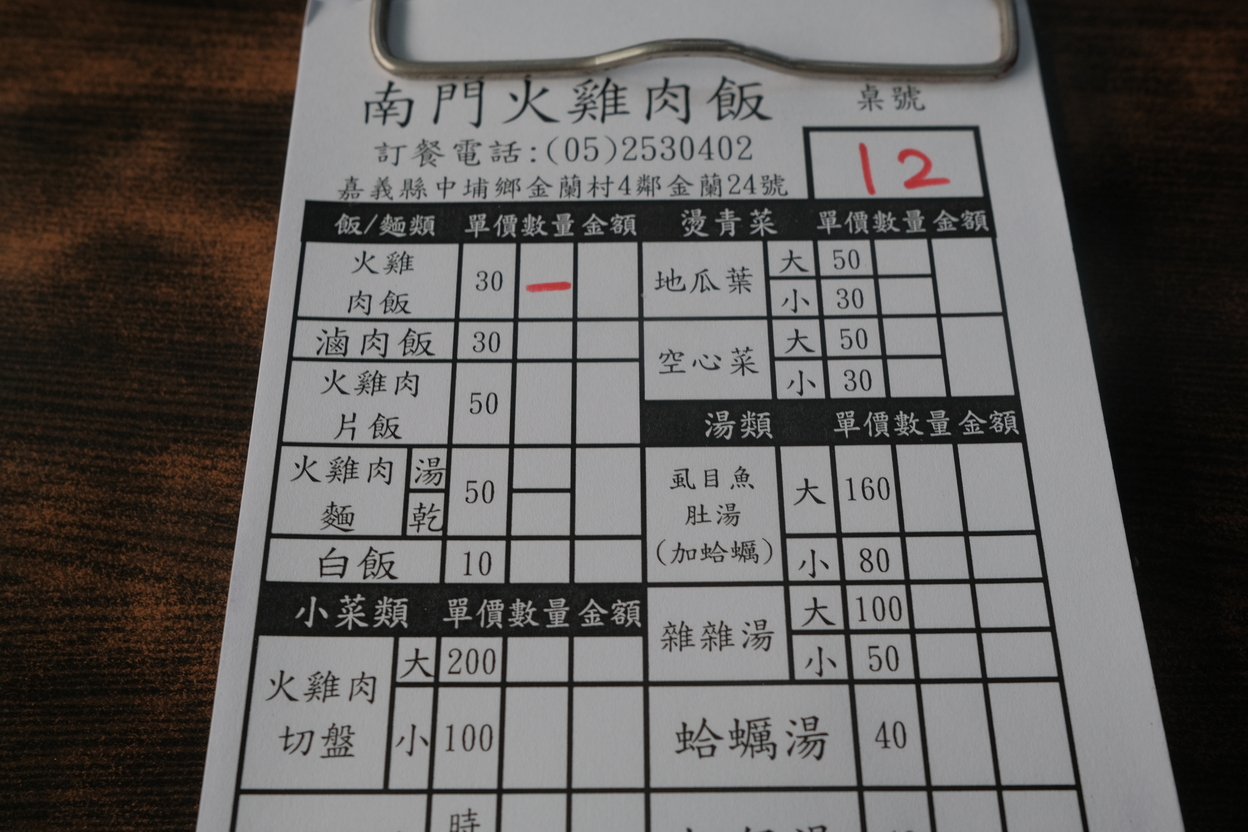 南門火雞肉飯
桌號
訂餐電話:(05)2530402
12
嘉義縣中埔鄉金蘭村4鄰金蘭24號
飯/麵類 單價 數量 金額
火雞
肉飯 30 一
滷肉飯 30
火雞肉
片飯 50
火雞肉
麵 湯 乾 50
白飯 10
小菜類 單價 數量 金額
火雞肉
切盤 大 200
小 100
時
燙青菜 單價 數量 金額
地瓜葉 大 50
小 30
空心菜 大 50
小 30
湯類 單價 數量 金額
虱目魚
肚湯
(加蛤蠣) 大 160
小 80
雜雜湯 大 100
小 50
蛤蠣湯 40